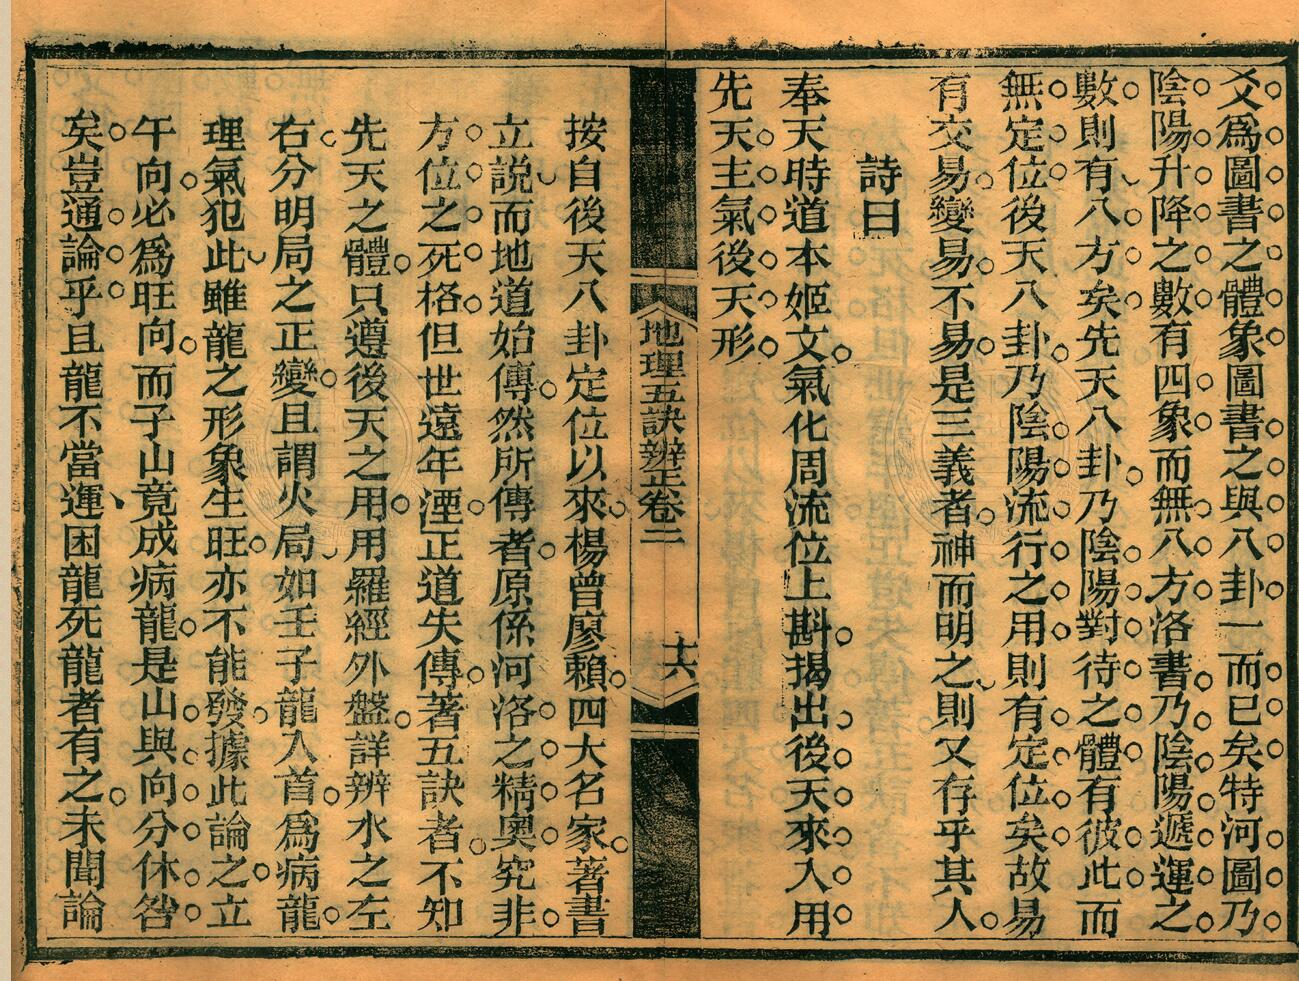 爻爲圖書之體象圖書之與八卦一而已矣特河圖乃
陰陽升降之數有四象而無八方洛書乃陰陽遞運之
數則有八方矣先天八卦乃陰陽對待之體有彼此而
無定位後天八卦乃陰陽流行之用則有定位矣故易
有交易變易不易是三義者神而明之則又存乎其人
詩曰
奉天時道本姬文氣化周流位上斟揭出後天來入用
先天主氣後天形
地理五訣辨正卷二
十六
按自後天八卦定位以來楊曾廖賴四大名家著書
立說而地道始傳然所傳者原係河洛之精奧究非
方位之死格但世遠年湮正道失傳著五訣者不知
先天之體只遵後天之用用羅經外盤詳辨水之左
右分明局之正變且謂火局如壬子龍入首爲病龍
理氣犯此雖龍之形象生旺亦不能發據此論之立
午向必爲旺向而子山竟成病龍是山與向分休咎
矣豈通論乎且龍不當運困龍死龍者有之未聞論